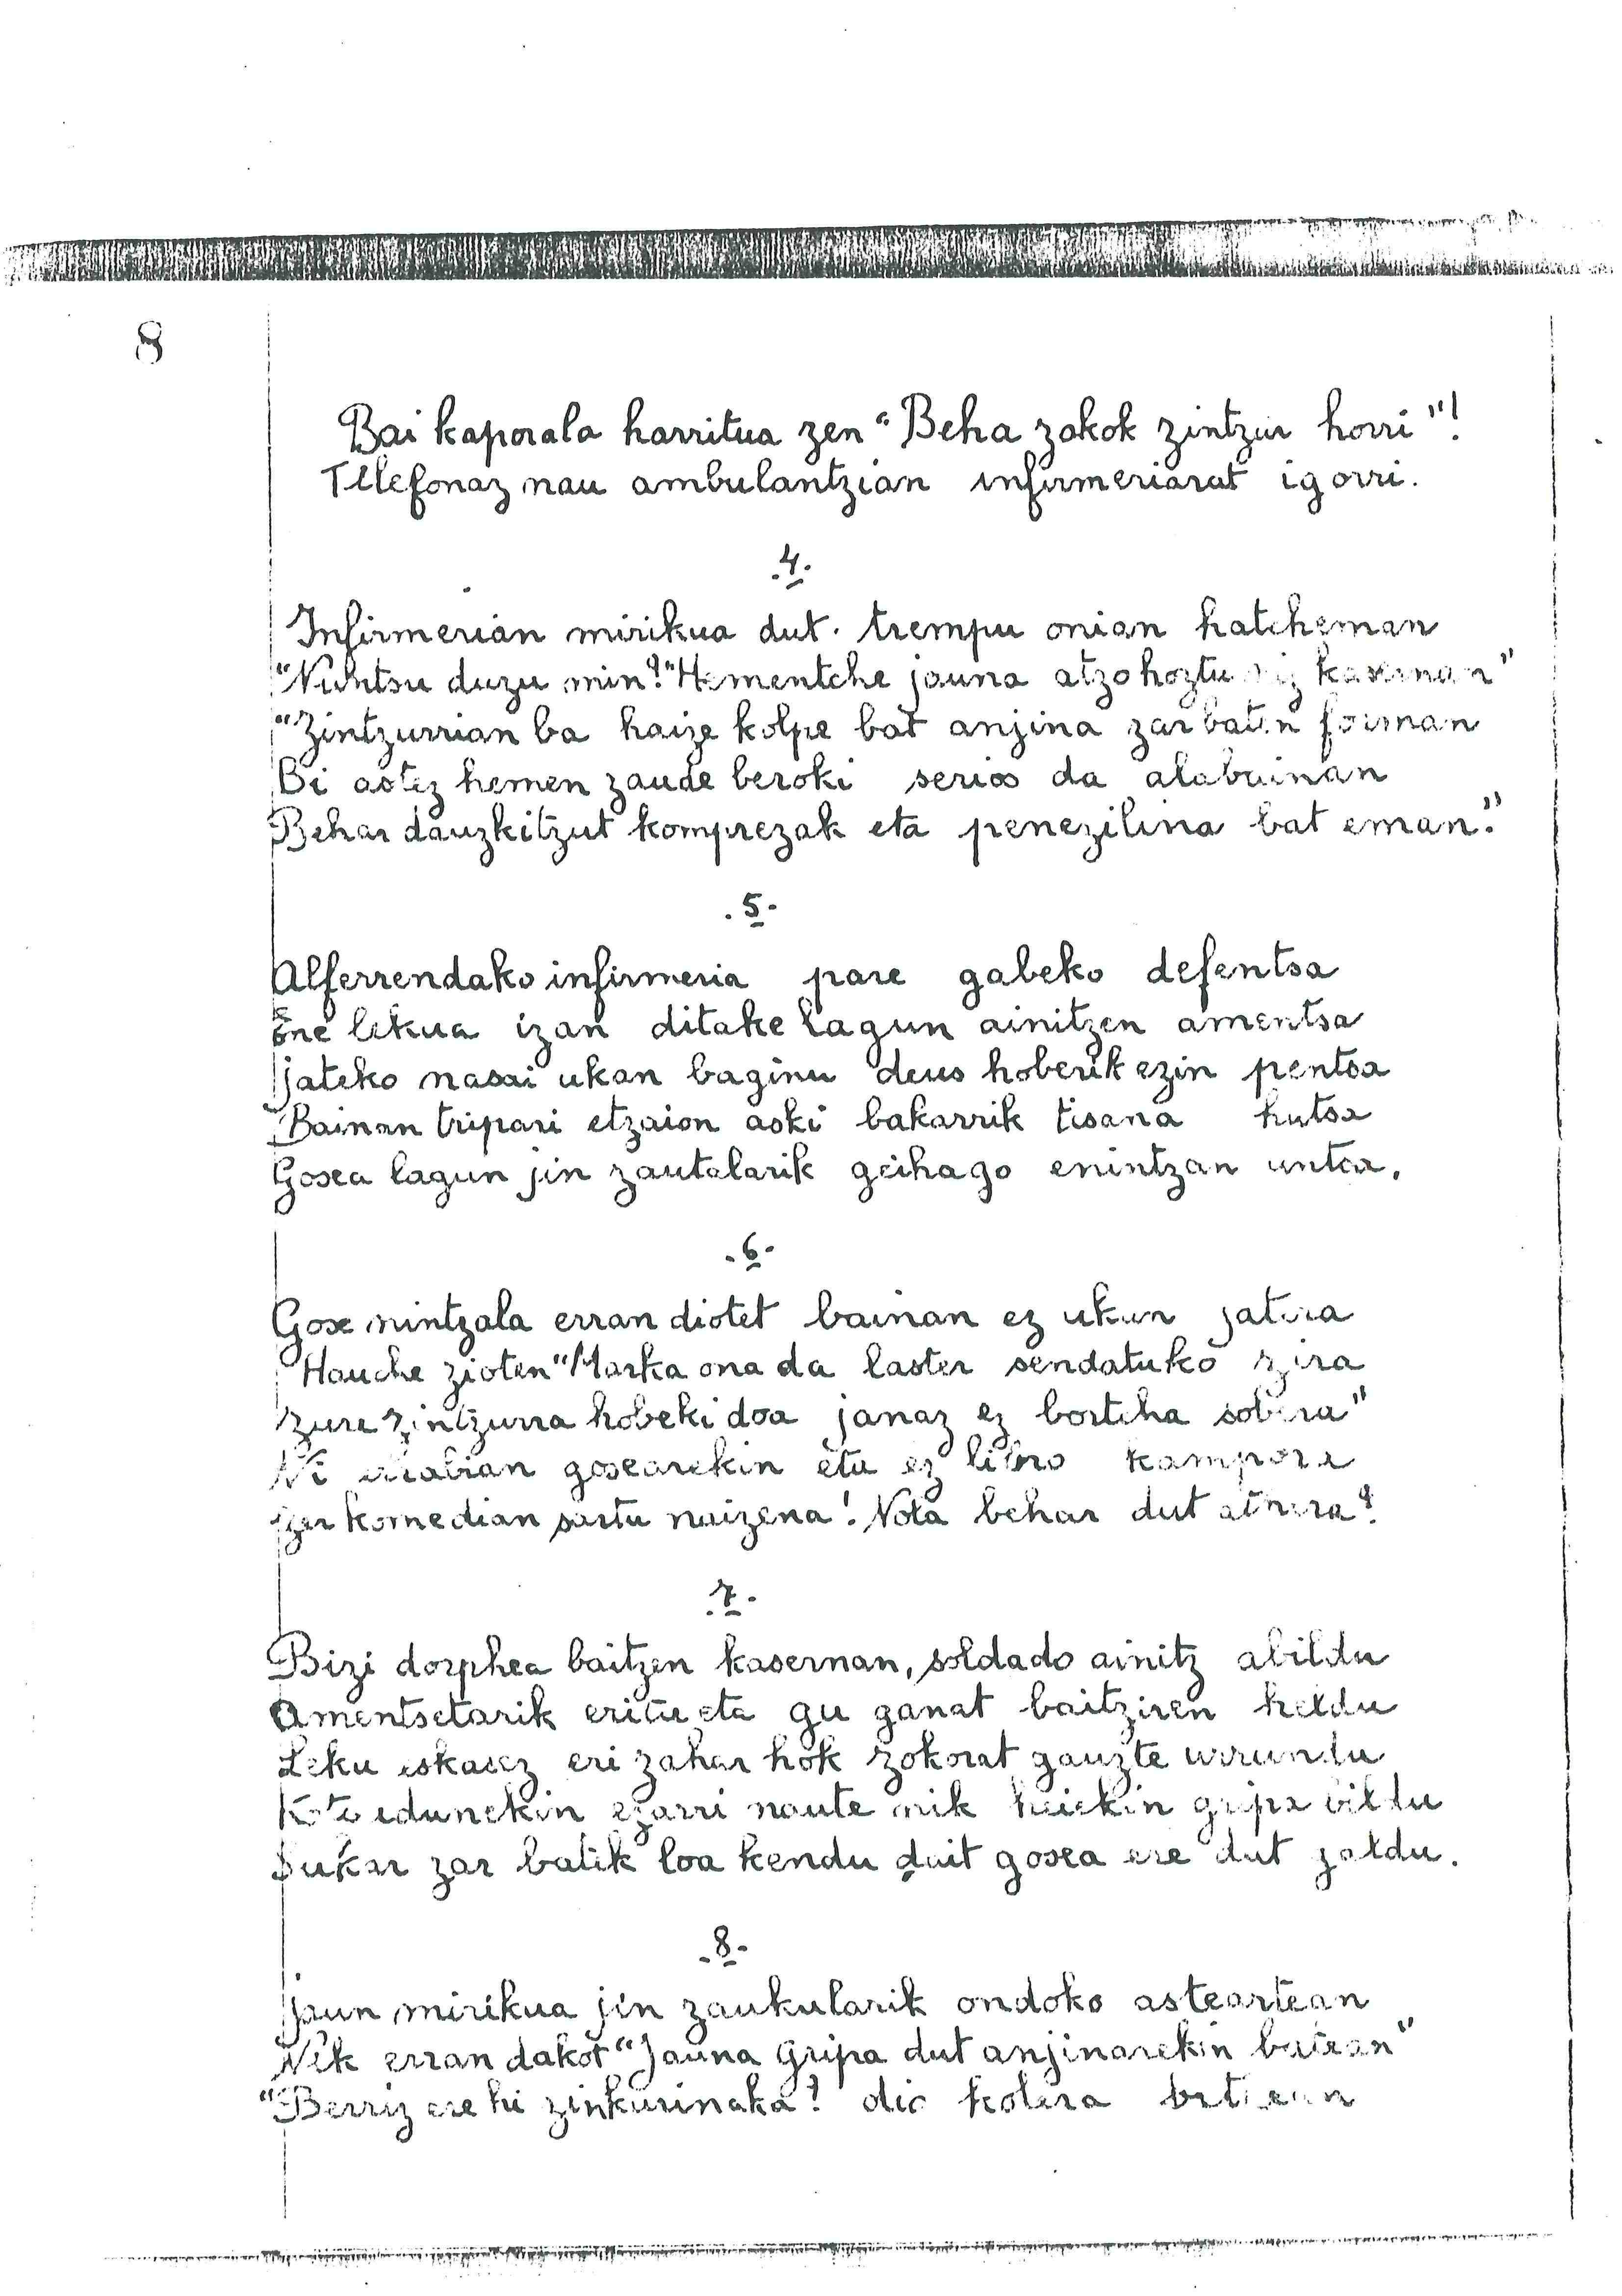 8
Bai kaporala harritua zen "Beha zokok zintzur horri"!
Telefonaz nau ambulantzian infirmeriarat igorri.
.4.
Infirmerian mirikua dut. trempu onian hatcheman
"Nuntsu duzu min?" "Hementche jauna atzo hoztu niz kasernan"
"Zintzurrian ba haize kolpe bat anjina zar baten forman
Bi astez hemen zaude beroki serios da alabainan
Behar dauzkitzut komprezak eta penezilina bat eman."
.5.
Alferrendako infirmeria pare gabeko defentsa
ene lekua izan ditake lagun ainitzen amentsa
jateko nasai ukan baginu deus hoberik ezin pentsa
Bainan tripari etzaion aski bakarrik tisana hutsa
Gosea lagun jin zautalarik geihago enintzan untsa.
.6.
Gose nintzala erran diotet bainan ez ukan jatera
Hauche zioten "Marka ona da laster sendatuko zira
zure zintzurra hobeki doa janaz ez bortcha sobera"
Ni errabian gosearekin eta ez libro kampora
zer komedian sartu naizena! Nola behar dut athera?
.7.
Bizi dorphea baitzen kasernan, soldado ainitz abildu
Amentsetarik eritu eta gu ganat baitziren heldu
Leku eskasez eri zahar hok zokorat gauzte urrundu
Kote edunekin ezarri naute nik heiekin gripa bildu
Sukar zar batek loa kendu dait gosea ere dut galdu.
.8.
Jaun mirikua jin zaukularik ondoko asteartean
Nik erran dakot "Jauna gripa dut anjinarekin batean"
"Berriz ere hi zinkurinaka! dio kolera